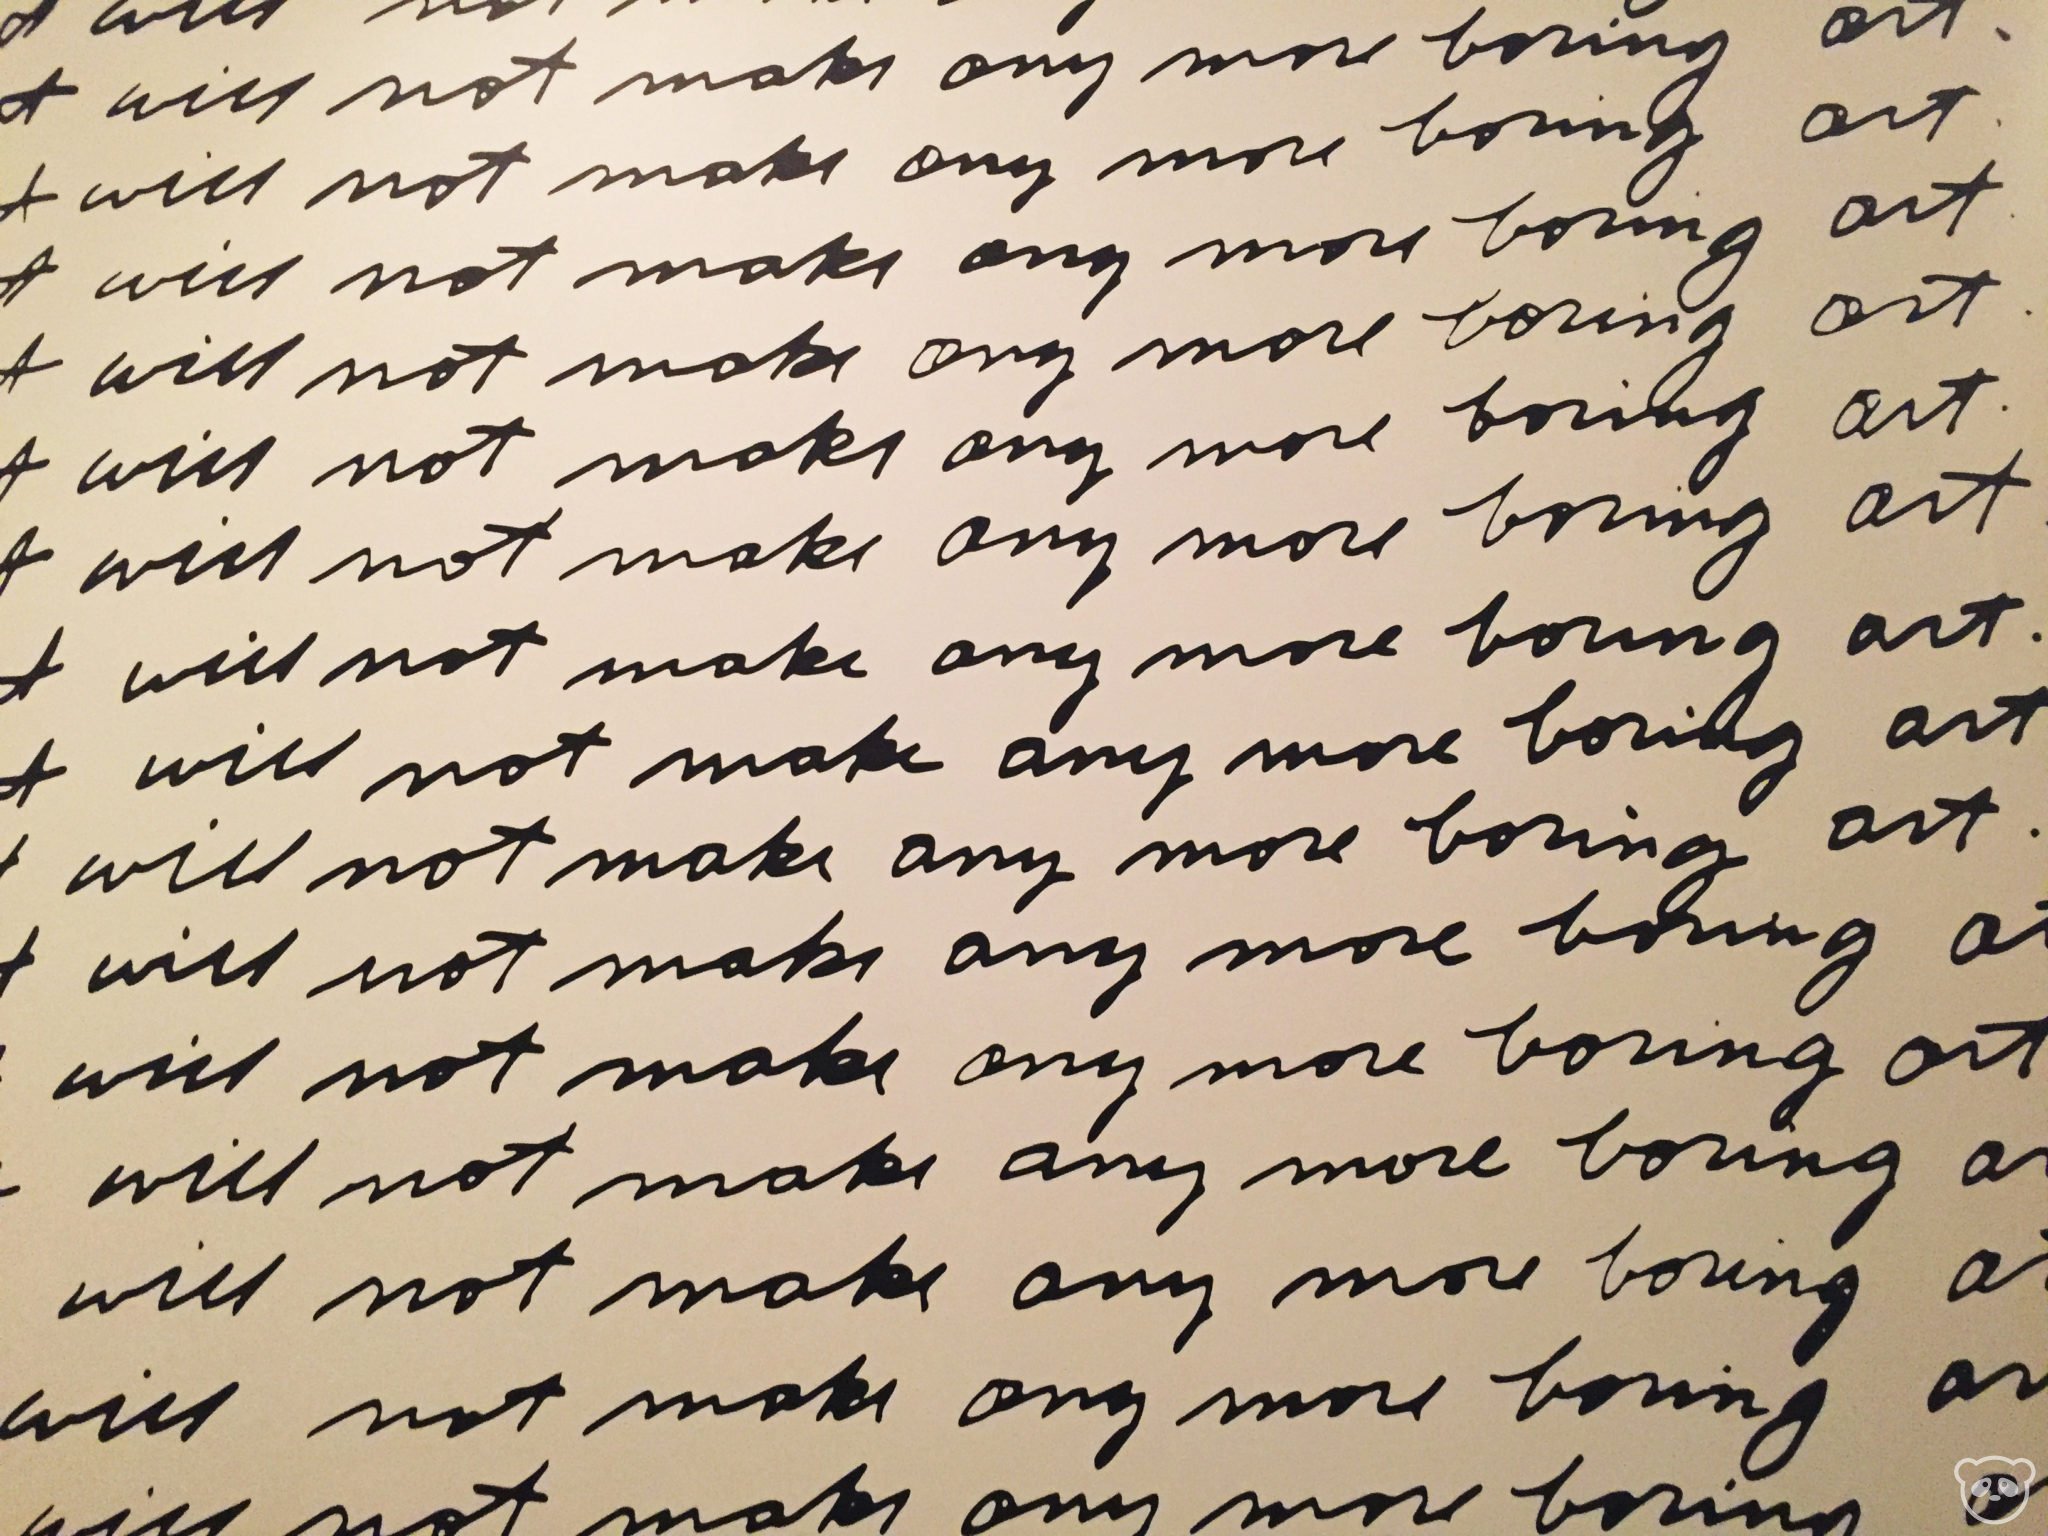 I will not make any
I will not make any more boring art.
I will not make any more boring art.
I will not make any more boring art.
I will not make any more boring art.
I will not make any more boring art.
I will not make any more boring art.
I will not make any more boring art.
I will not make any more boring art
I will not make any more boring art.
I will not make any more boring
will not make any more boring art
will not make any more boring
will not make any more boring
will not make any more boring
will not make any more boring